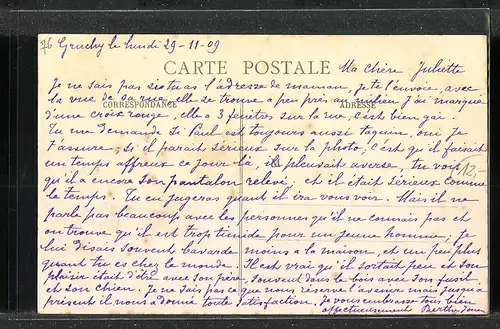 76 Gruchy le lundi 29-11-09
CARTE POSTALE
Ma chère Juliette
Je ne sais pas si tu as l'adresse de maman, je te l'envoie, avec
la vue de sa rue, elle se trouve à peu près au milieu j'ai marqué
CORRESPONDANCE ADRESSE
d'une croix rouge, elle a 3 fenêtres sur la rue, c'est bien gai.
Tu me demande si Paul est toujours aussi taquin, oui je
t'assure, si il parait sérieux sur la photo, c'est qu'il faisait
un temps affreux ce jour là, il pleuvait averse, tu vois
qu'il a encore son pantalon relevé, et il était sérieux comme
12,-
le temps. Tu en jugeras quand il ira vous voir. Mais il ne
parle pas beaucoup avec les personnes qu'il ne connais pas et
on trouve qu'il est trop timide pour un jeune homme, je
lui disais souvent bavarde moins a la maison, et un peu plus
quant tu es chez le monde. Il est vrai qu'il sortait peu et son
plaisir était d'être avec son frère, souvent dans le bois avec son fusil
et son chien. Je ne sais pas ce que nous réserve l'avenir mais jusqu'à
présent il nous a donné toute satisfaction. Je vous embrasse tous bien
affectueusement Berthe